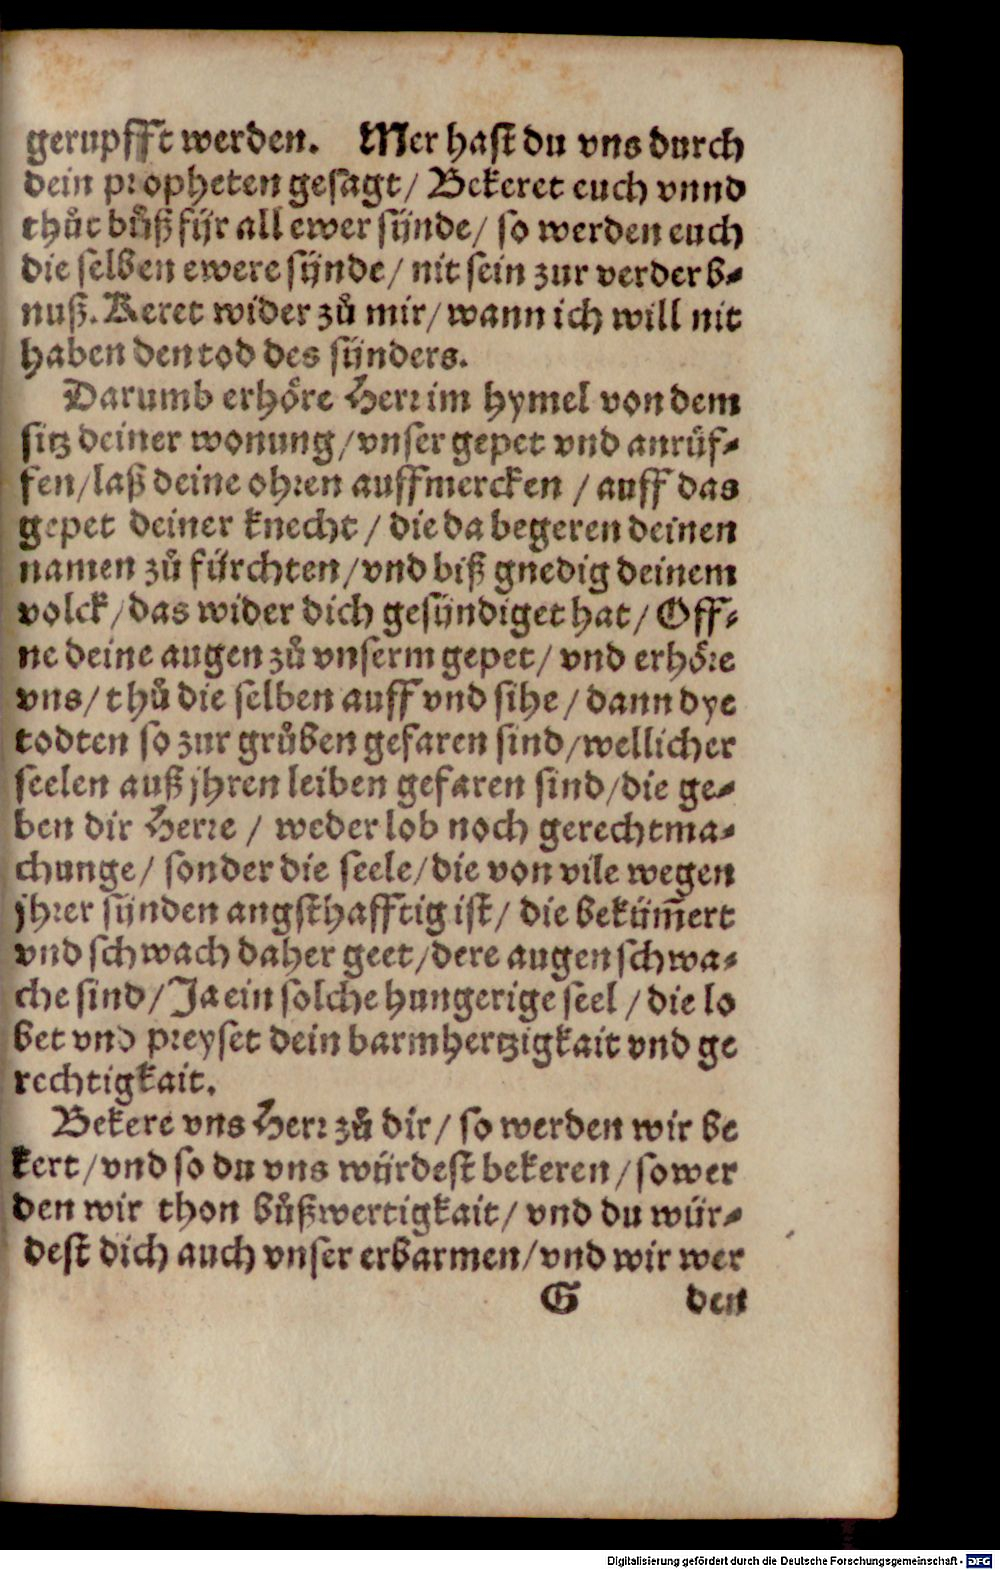 gerupfft werden. Mer hast du vns durch
dein propheten gesagt/ Bekeret euch vnnd
thůt bůß für all ewer sünde/ so werden euch
die selben ewere sünde/ nit sein zur verderb-
nuß. Keret wider zů mir/ wann ich will nit
haben den tod des sünders.
Darumb erhöre Herr im hymel von dem
sitz deiner wonung/ vnser gepet vnd anrüf-
fen/ laß deine ohren auffmercken / auff das
gepet deiner knecht / die da begeren deinen
namen zů fürchten/ vnd biß gnedig deinem
volck/ das wider dich gesündiget hat/ Öff-
ne deine augen zů vnserm gepet/ vnd erhöre
vns/ thů die selben auff vnd sihe / dann dye
todten so zur grůben gefaren sind/ wellicher
seelen auß jhren leiben gefaren sind/ die ge-
ben dir Herre / weder lob noch gerechtma-
chunge/ sonder die seele/ die von vile wegen
jhrer sünden angsthafftig ist/ die bekümm̄ert
vnd schwach daher geet/ dere augen schwa-
che sind/ Ja ein solche hungerige seel / die lo
bet vnd preyset dein barmhertzigkait vnd ge
rechtigkait.
Bekere vns Herr zů dir/ so werden wir be
kert/ vnd so du vns würdest bekeren/ so wer
den wir thon bůßwertigkait/ vnd du wür-
dest dich auch vnser erbarmen/ vnd wir wer
G den
Digitalisierung gefördert durch die Deutsche Forschungsgemeinschaft - DFG